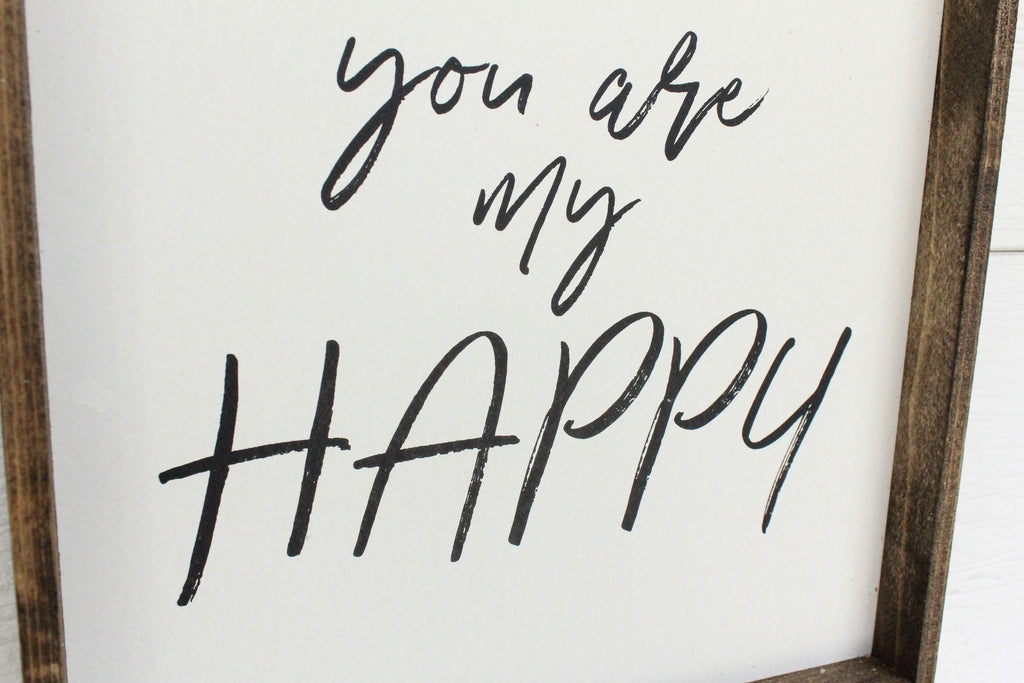 you are
my
HAPPY